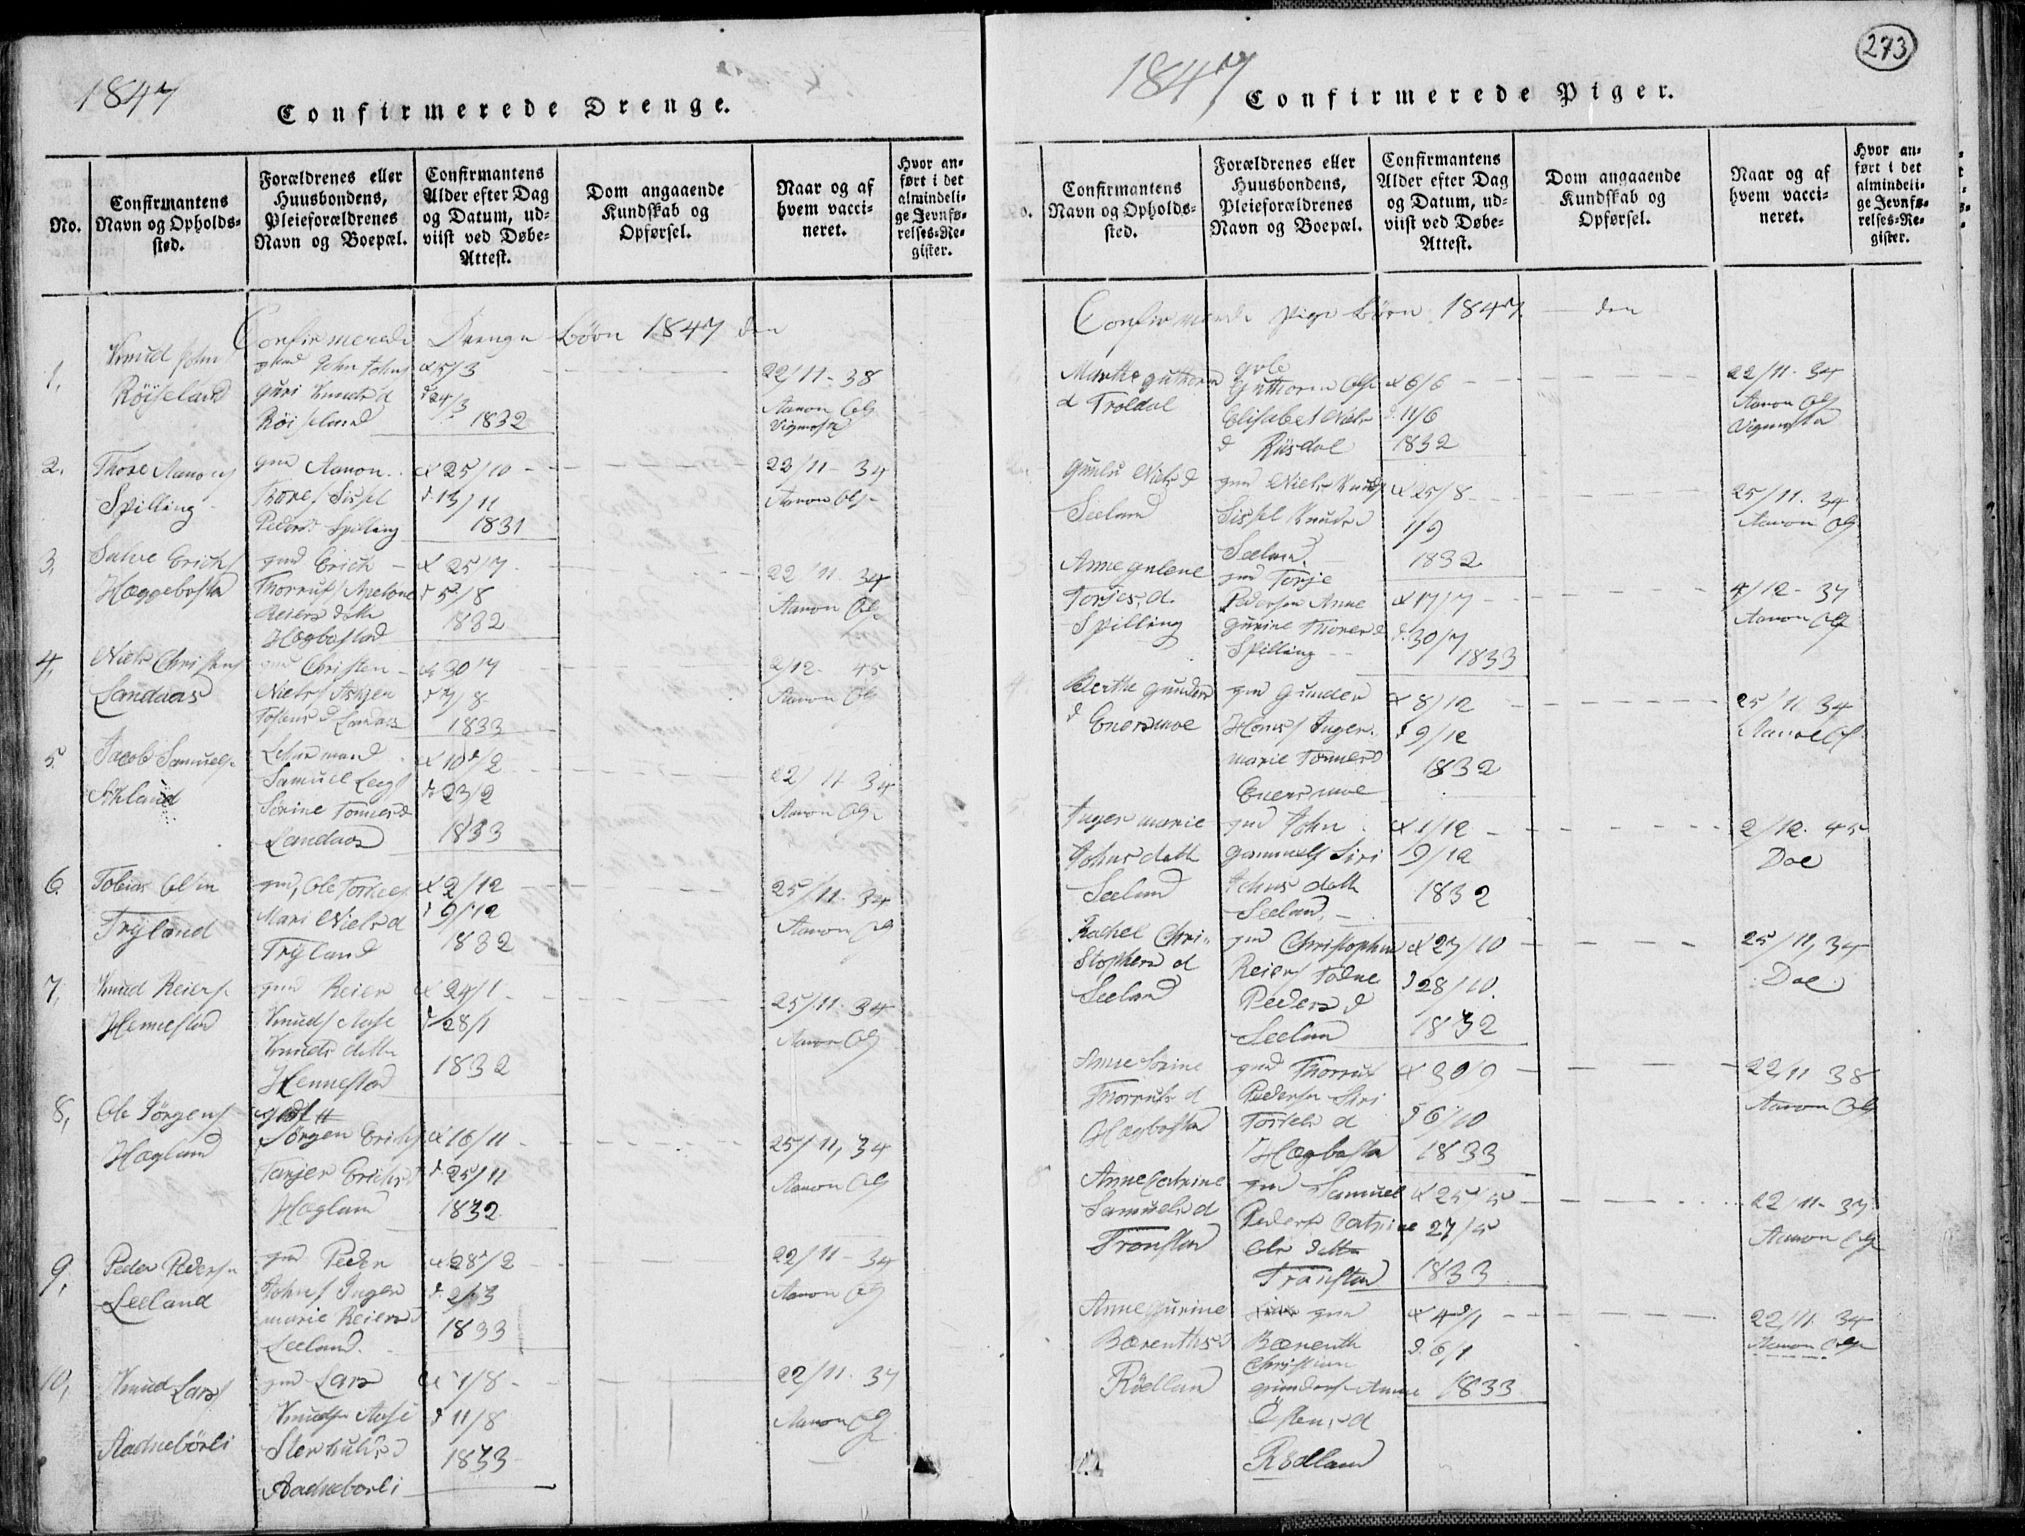 1847
Confirmerede Drenge.
No.
Confirmantens
Navn og Opholds-
sted.
Forældrenes eller
Huusbondens,
Pleieforældrenes
Navn og Boepæl.
Confirmantens
Alder efter Dag
og Datum, ud-
viist ved Døbe-
Attest.
Dom angaaende
Kundskab og
Opførsel.
Naar og af
hvem vacci-
neret.
Hvor an-
ført i det
almindeli-
ge Jevnfø-
relses-Re-
gister.
Confirmerede Drenge børn 1847 den
1,
Knud John
Röiseland
John Johns
Guri Knuds d
Röiseland
5/3
24/3
1832
22/11 - 38
Aanon Ols
Vigmosta
2.
Thore Aanons
Spilling
gmd Aanon
Thores Sissel
Peders d Spilling
25/10
13/11
1831
22/11 - 34
Aanon Ols
3,
Salve Erichs
Hæggebosta
gmd Erich
Thorrufs
Reiers datt
Hægbostad
25/7
5/8
1832
22/11 - 34
Aanon Ols
4,
Niels Christens
Landaas
gmd Christen
Niels
Landaas
30/7
/8
1833
2/12 - 45
Aanon Ols
5
Jacob Samuels
Lehnsmand
Samuel
Serine Tonnes d
Landaas
10/2
23/2
1833
22/11 34
Aanon Ols
6
Tobias Olsen
Trÿland
gmd, Ole
Mari Niels d
Trÿland
2/12
9/12
1832
25/11 - 34
Aanon Ols
7,
Knud Reiers
Hennestad
gmd Reier
Knuds Aase
Knuds datt
Hennestad
24/1
28/1
1832
25/11 - 34
Aanon Ols
8,
Ole Jörgens
Hæglund
Jörgen Erichs
Tanjer Erichs d
Hæglund
16/11
25/11
1832
25/11, 34
Aanon Ols
9,
Peder Peders
Leeland
gmd Peder
Johns Inger
marie Reiers d
Leeland
28/2
2/3
1833
22/11 - 34
Aanon Ols
10,
Knud Lars
Aadnebörli
gmd Lars
Knuds Aase
Aadneborli
1/8
11/8
1833
22/11 - 34
Aanon Ols
273
1847
Confirmerede Piger.
No.
Confirmantens
Navn og Opholds-
sted.
Forældrenes eller
Huusbondens,
Pleieforældrenes
Navn og Boepæl.
Confirmantens
Alder efter Dag
og Datum, ud-
viist ved Døbe-
Attest.
Dom angaaende
Kundskab og
Opførsel.
Naar og af
hvem vacci-
neret.
Hvor an-
ført i det
almindeli-
ge Jevnfø-
relses-Re-
gister.
Confirmerede pige børn 1847 den
Marthe Guthorm
d Troldal
Guttorm Ols
Elisabet Niels
d Riisdal
6/6
11/6
1832
22/11 - 34
Aanon Ols
Vigmosta
Gunlu Niels d
Seeland
gmd Niels Knuds
Sissel Knuds d
Seeland
25/8
1/9
1832
25/11 - 34
Aanon Ols
3
Anne Gulene
Torjes, d.
Spilling
gmd Torje
Pedersen Anne
Gurine Thores d
Spilling
17/7
30/7
1833
4/12 - 37
Aanon Ols
4
Berthe Gunders
d Enersmoe
gmd Gunder
Hans Inger
marie Tonnes d
Enersmoe
8/12
9/12
1832
25/11 34
Inger marie
Johns datt
Seeland
gmd John
Gammels Siri
Johns datt
Seeland
1/12
9/12
1832
2/12 - 45
Doe
Rachel Chri-
stophers d
Seeland
gmd Christopher
Reiers Tolne
Peders d
Seeland
27/10
28/10
1832
25/11, 34
Doe
Anne Serine
Thorrufs d
Hægbosta
gmd Thorruf
Pedersen Siri
d
Hægbosta
30/9
6/10
1833
22/11 38
Aanon Ols
8
Anne Catrine
Samuels d
Tronstad
gmd Samuel
Peders Catrine
Ols datt
Tronstad
25/5
27/5
1833
22/11 - 37
Aanon Ols
Anne Gurine
Bærenths d
Rödland
gmd
Bærenth
Christian
Gunders Anne
Östens d
Rödland
4/1
6/1
1833
22/11 34
Aanon Ols